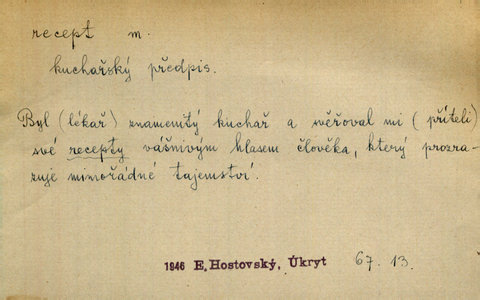 recept m.
kuchařský předpis.
Byl (lékař) znamenitý kuchař a svěřoval mi (příteli)
své recepty vášnivým hlasem člověka, který prozra-
zuje mimořádné tajemství.
1946 E. Hostovský, Úkryt 67. 13.